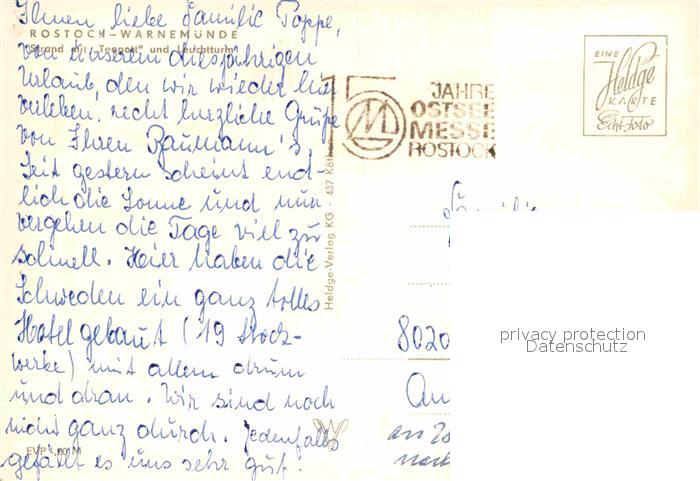 Ihnen liebe Familie Poppe,
ROSTOCK-WARNEMÜNDE
Strand mit „Teepott" und Leuchtturm
von unserem diesjährigen
Urlaub, den wir wieder hier
verleben, recht herzliche Grüße
von Ihren Baumann's.
Seit gestern scheint end-
lich die Sonne und nun
vergehen die Tage viel zu
schnell. Hier haben die
Schweden ein ganz tolles
Hotel gebaut (19 Stock-
werke) mit allem drum
und dran. Wir sind noch
nicht ganz durch. Jedenfalls
EVP M
gefällt es uns sehr gut.
Heldge-Verlag KG · 437 Köthen
15
JAHRE
OSTSEE
MESSE
ROSTOCK
EINE
Heldge
KARTE
Echt-Foto
Familie
8020
privacy protection
Datenschutz